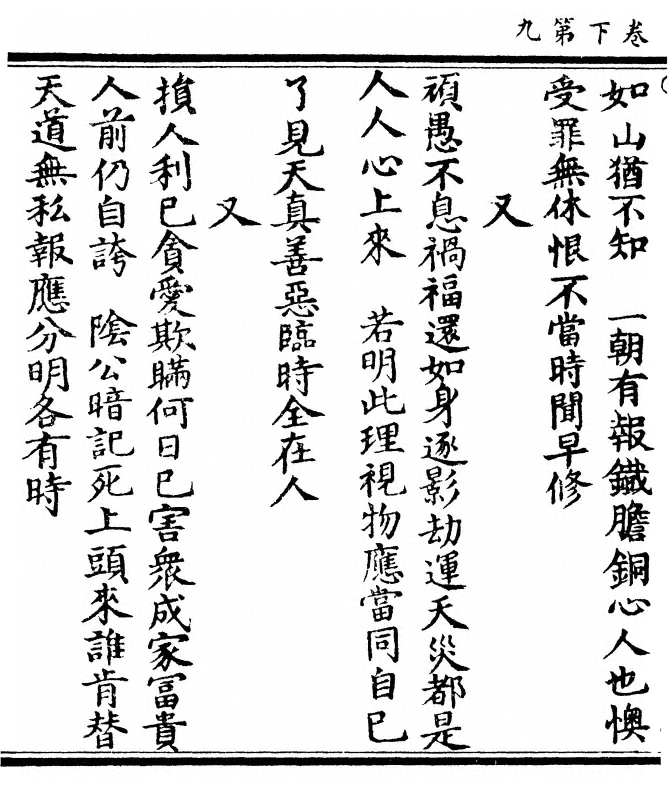 卷下第九
如山猶不知 一朝有報鐵膽銅心人也懊
受罪無休恨不當時聞早修
又
頑愚不息禍福還如身逐影劫運天災都是
人人心上來 若明此理視物應當同自已
了見天真善惡臨時全在人
又
損人利已貪愛欺瞞何日已害衆成家冨貴
人前仍自誇 陰公暗記死上頭來誰肯替
天道無私報應分明各有時